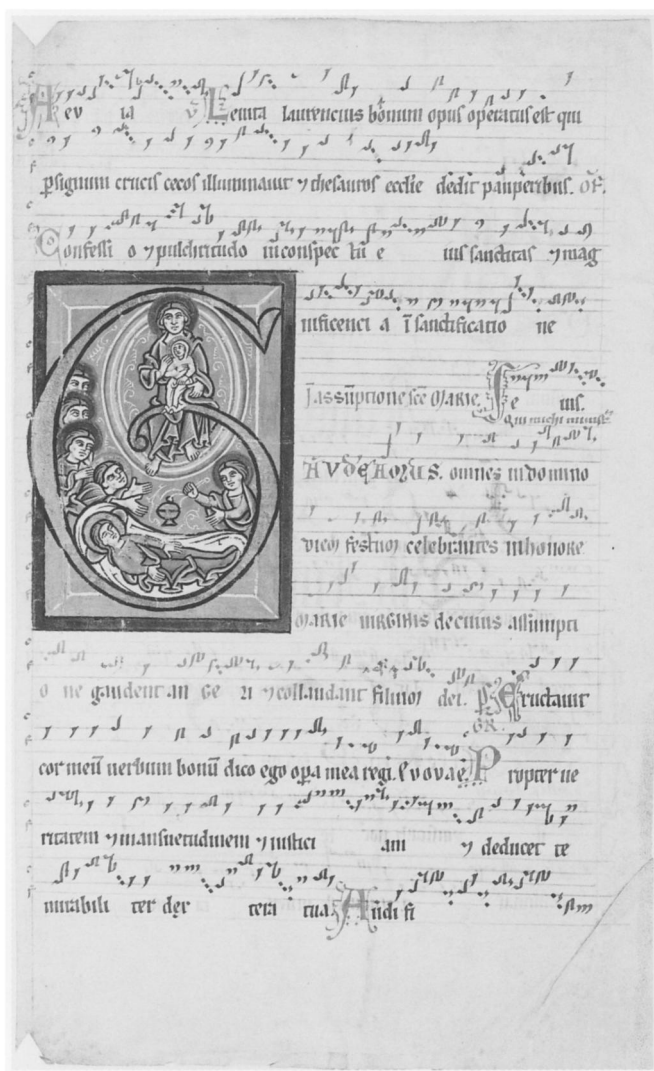 A ev ia ℣ Levita laurencius bonum opus operatus est qui
p signum crucis cecos illuminavit ⁊ thesauros ecclie dedit pauperibus. OF.
Confessi o ⁊ pulchritudo in conspec tu e ius sanctitas ⁊ mag
nificenci a ī sanctificatio ne
e ius.
In assūptione sce Marie.
GAVDEAMUS. omnes in domino
diem festum celebrantes in honore
MARIE VIRGINIS de cuius assumpti
o ne gaudent an ge li ⁊ collaudant filium dei. ps. Eructavit
GR.
cor meū verbum bonū dico ego opa mea regi. Evovae. Propter ve
ritatem ⁊ mansuetudinem ⁊ iustici am ⁊ deducet te
mirabili ter der tera tua. Audi fi